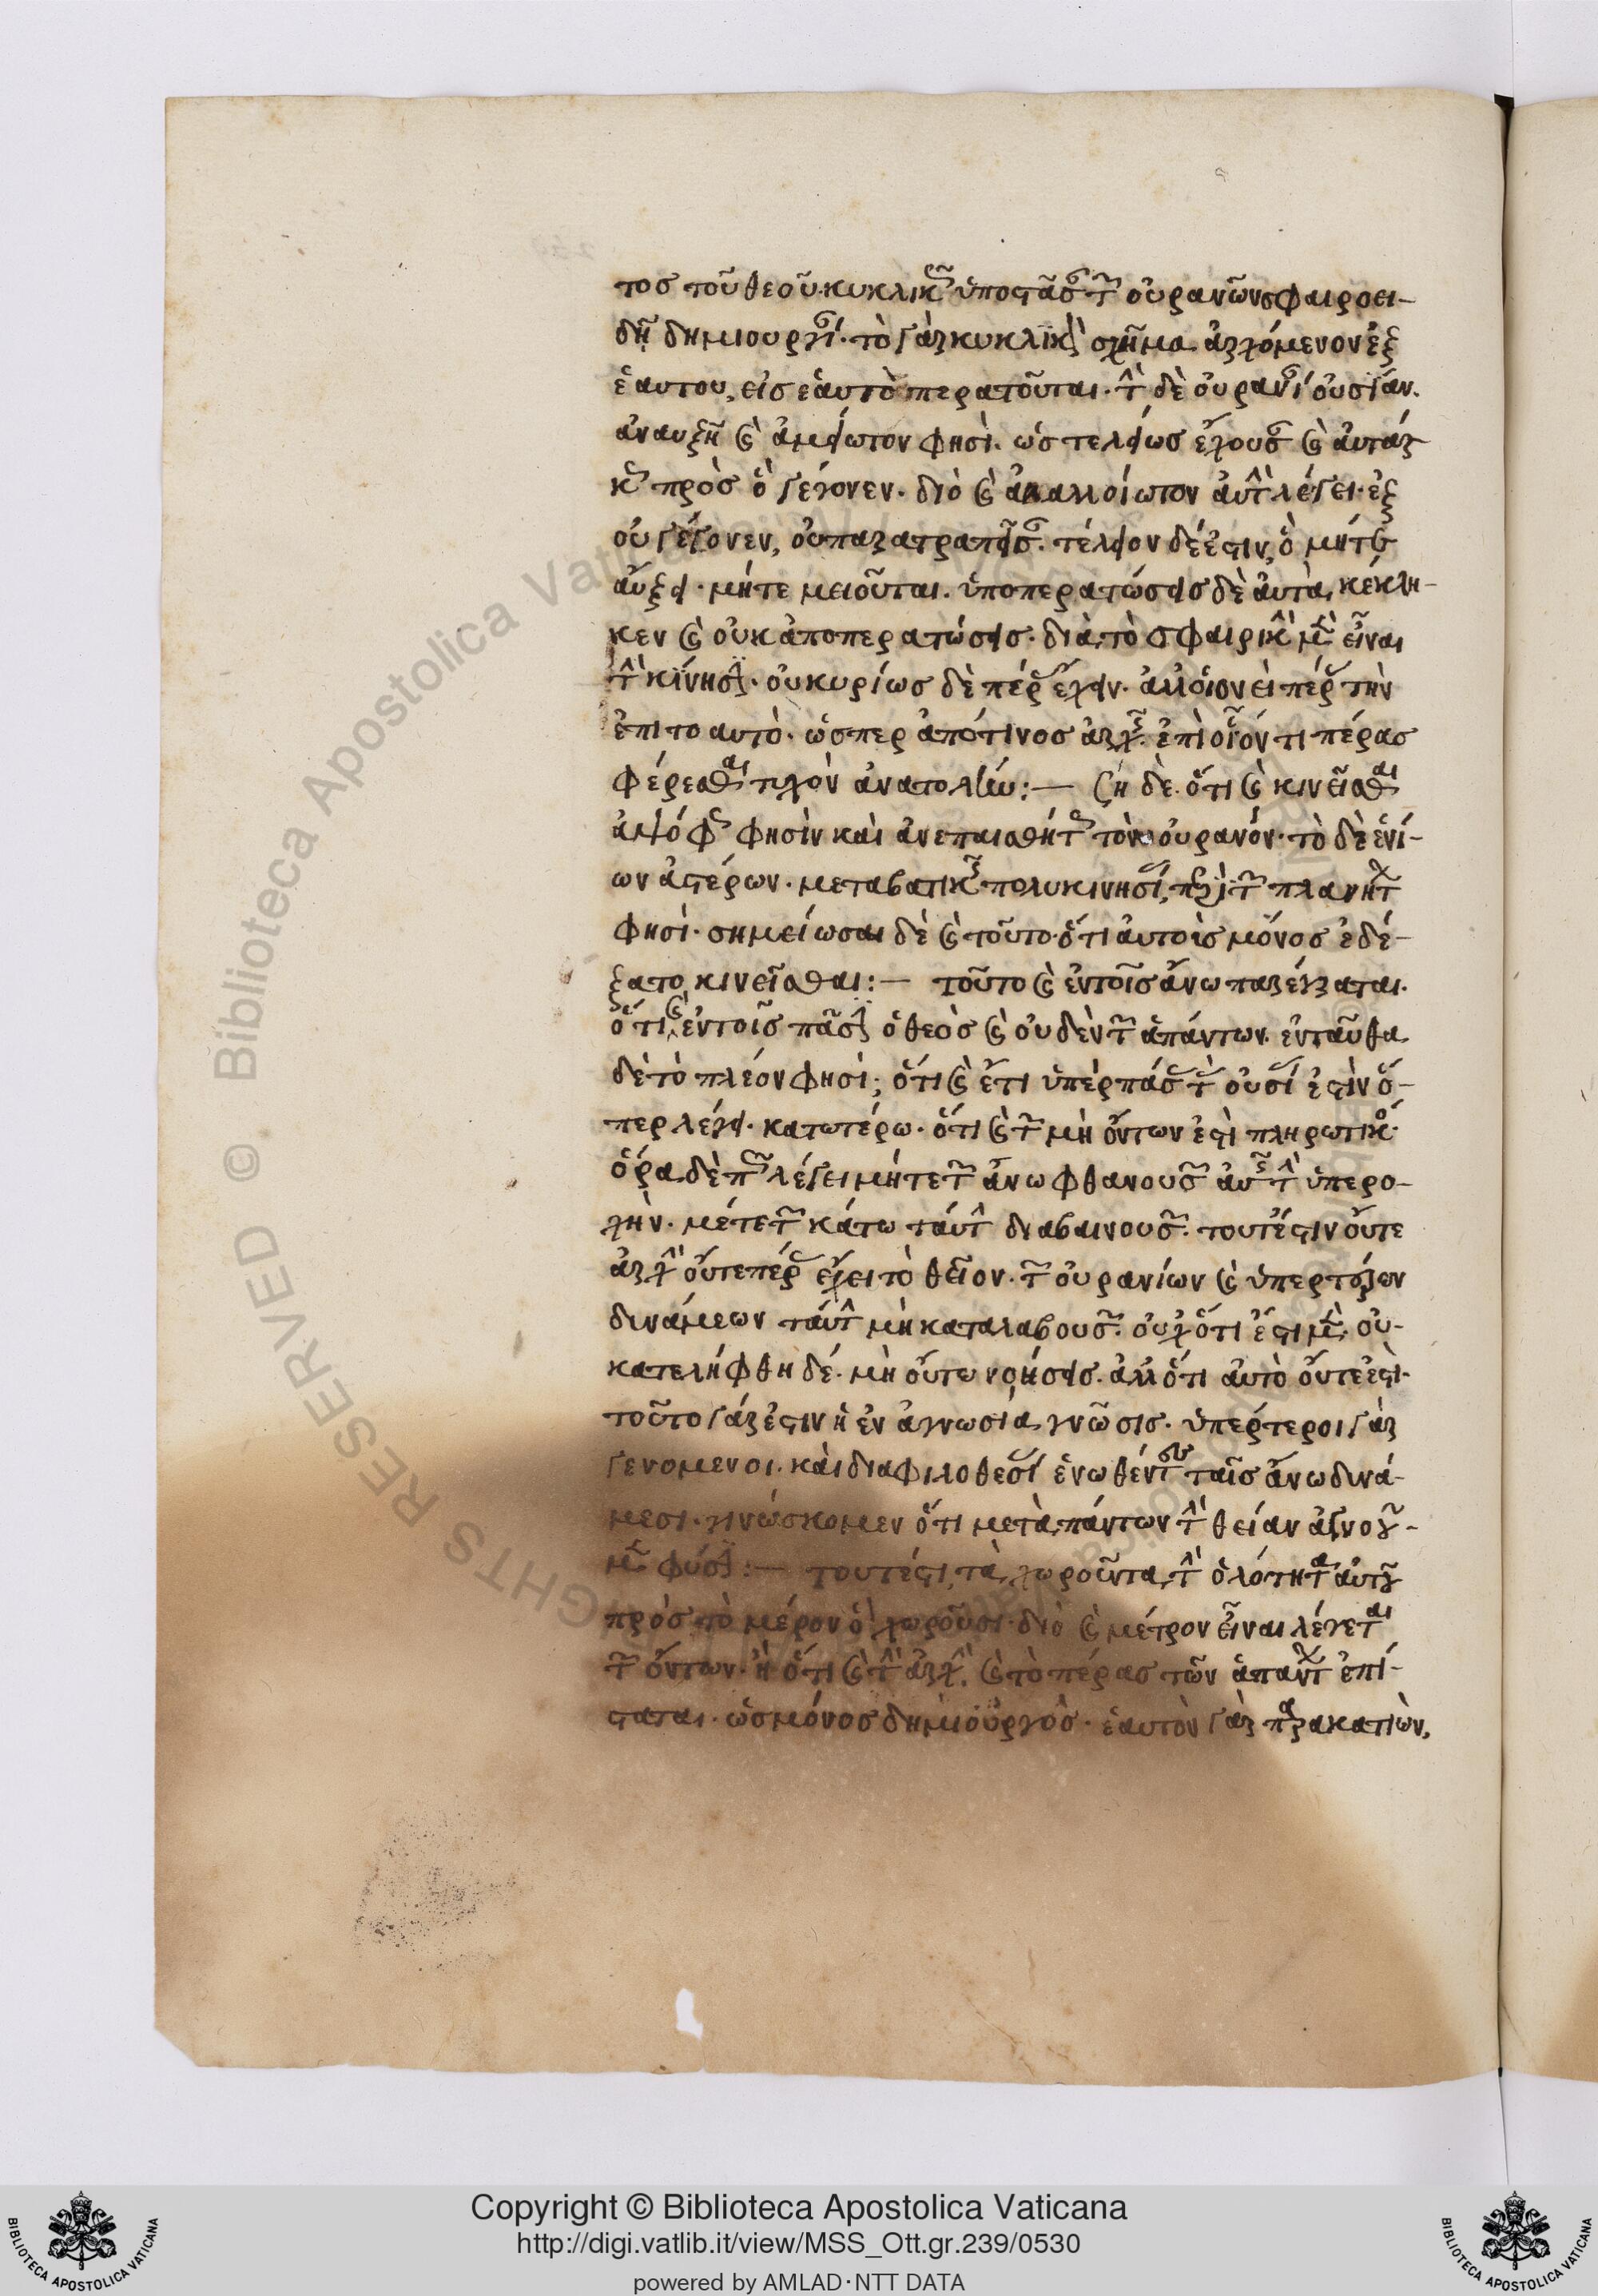 τος τοῦ θεοῦ. κυκλικῶς ὑποστάσης τῆς οὐρανῶν σφαιροει-
δῆ δημιουργίας. τὸ γὰρ κυκλικὸν σχῆμα ἀρχόμενον ἐξ
ἑαυτου, εἰς ἑαυτὸ περατοῦται. τὴν δὲ οὐρανίαν οὐσίαν.
ἀναυξῆ καὶ ἀμείωτον φησὶ. ὡς τελείως ἔχουσαν καὶ αὐτάρ
κως πρὸς ὃ γέγονεν. διὸ καὶ ἀναλλοίωτον αὐτὴν λέγει. ἐξ
οὗ γέγονεν, οὐ παρατραπεῖσαν. τέλειον δέ ἐστιν, ὃ μήτε
αὔξει. μήτε μειοῦται. ὑποπερατώσεις δὲ αὐτὰ, κέκλη-
κεν καὶ οὐκ ἀποπερατώσεις. διὰ τὸ σφαιρικὴν μὲν εἶναι
τὴν κίνησιν. οὐ κυρίως δὲ πέρας ἔχειν. ἀλλ' οἱονεὶ πέρας τὴν
ἐπι το αυτὸ. ὥσπερ ἀπό τινος ἀρχῆς ἐπὶ οἷόν τι πέρας
φέρεσθαι τηλὸν ἀνατολὴν:— ση δὲ. ὅτι καὶ κινεῖσθαι
ἀψόφως φησὶν καὶ ἀνεπαισθήτως τὸν οὐρανόν. τὸ δὲ ἐνί-
ων ἀστέρων. μεταβατικῆς πολυκινησίας, περὶ τῶν πλανητῶν
φησὶ. σημείωσαι δὲ καὶ τοῦτο. ὅτι αὐτοὶς μόνος ἐδέ-
ξατο κινεῖσθαι:— τοῦτο καὶ ἐν τοῖς ἄνω παρέρχαται.
ὅτι καὶ ἐν τοῖς πᾶσιν ὁ θεὸς καὶ οὐδὲν τῶν ἁπάντων. ἐνταῦθα
δὲ τὸ πλέον φησὶ; ὅτι καὶ ἔτι ὑπὲρ πάσας τὰς οὐσίας ἐστὶν ὅ-
περ λέγει. κατωτέρω. ὅτι καὶ τῶν μὴ ὄντων ἐστὶ πληρωτικός.
ὅρα δὲ πῶς λέγει μήτε τῶν ἄνω φθανουσῶν αὐτῆς τὴν ὑπερο-
χὴν. μέτε τῶν κάτω ταύτην διαβαινουσῶν. τουτέστιν οὔτε
ἀρχὴν οὔτε πέρας ἔχει τὸ θεῖον. τῶν οὐρανίων καὶ ὑπερτέρων
δινάμεων ταύτην μὴ καταλαβουσῶν. οὐχ ὅτι ἔστι μὲν. οὐ-
κατελήφθη δέ. μὴ οὕτω νοήσεις. ἀλλ' ὅτι αὐτὸ οὔτε ἐστὶ.
τοῦτο γάρ ἐστιν ἡ ἐν ἀγνωσία γνῶσις. ὑπέρτεροι γὰρ
γενομενοι. καὶ δια φιλοθείας ἑνωθέντες ταῖς ἄνω δινά-
μεσι. γινώσκομεν ὅτι μετὰ πάντων τὴν θείαν ἀγνοοῦ-
μεν φύσιν:— τουτέστι, τὰ χωροῦντα, τὴν ὁλότητα αὐτοῦ
πρὸς τὸ μέρον ὃ χωροῦσι. διὸ καὶ μέτρον εἶναι λέγεται
τῶν ὄντων. ἢ ὅτι καὶ τὴν ἀρχὴν. καὶ τὸ πέρας τῶν ἁπάντων ἐπί-
σταται. ὡς μόνος δημιουργὸς. ἑαυτὸν γὰρ παρακατιὼν,
Copyright © Biblioteca Apostolica Vaticana
http://digi.vatlib.it/view/MSS_Ott.gr.239/0530
powered by AMLAD·NTT DATA